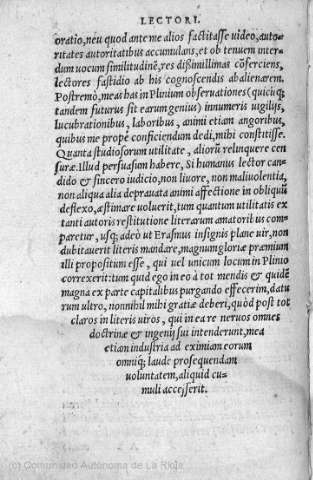 LECTORI.
oratio, neu quod ante me alios factitasse video, auto-
ritates autoritatibus accumulans, et ob tenuem inter-
dum vocum similitudinẽ, res dißimillimas cõferciens,
lectores fastidio ab his cognoscendis abalienarem.
Postremò, meas has in Plinium observationes (quicũq;
tandem futurus sit earum genius) innumeris vigilijs,
lucubrationibus, laboribus, animi etiam angoribus,
quibus me propè conficiendum dedi, mihi constitisse.
Quanta studiosorum utilitate, aliorũ relinquere cen
suræ. Illud persuasum habere, Si humanus lector can-
dido & sincero iudicio, non livore, non malivolentia,
non aliqua alia depravata animi affectione in obliquũ
deflexo, æstimare voluerit, tum quantum utilitatis ex
tanti autoris restitutione literarum amatorib us com-
paretur, usq; adeò ut Erasmus insignis plane vir, non
dubitaverit literis mandare, magnum gloriæ præmium
illi propositum esse, qui vel unicum locum in Plinio
correxerit: tum quid ego in eo à tot mendis & quidẽ
magna ex parte capitalibus purgando effecerim, datu
rum ultro, nonnihil mihi gratiæ deberi, quòd post tot
claros in literis viros, qui in ea re nervos omnes
doctrinæ & ingenij sui intenderunt, mea
etiam industria ad eximiam eorum
omniũq; laude prosequendam
voluntatem, aliquid cu-
muli accesserit.
(c) Comunidad Autónoma de La Rioja